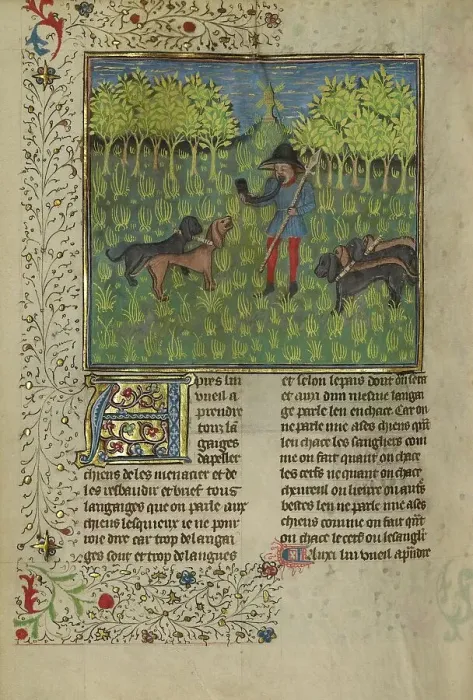 Apres lui
vueil a
prendre
touz la
gaiges
dapeller
chiens de les menacier et de
les resbaudir et brief tous
langaiges que on parle aux
chiens lesquieux ie ne pour
roie dire car trop de langai
ges sont et trop de langues
et selon le pais dont on sera
et auxi dun mesme langai
ge parle len en chace Car on
ne parle mie ases chiens qñt
len chace les sangliers com
me on fait quant on chace
les cerfs ne quant on chace
cheureul ou lieure ou autˢ
bestes len ne parle mie ases
chiens comme on fait qñt
on chace le cerf ou le sanglr̄
A luxi lui vueil apñdre